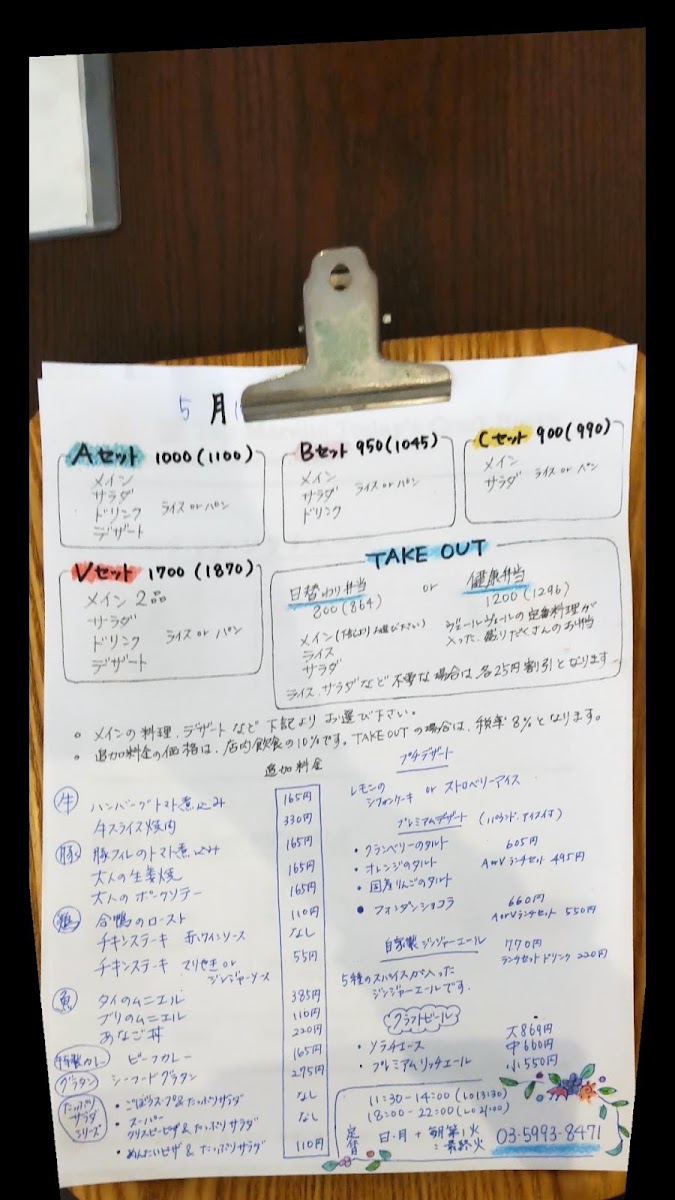 5月
Aセット 1000(1100)
メイン
サラダ
ドリンク ライス or パン
デザート
Bセット 950(1045)
メイン
サラダ ライス or パン
ドリンク
Cセット 900(990)
メイン
サラダ ライス or パン
Vセット 1700(1870)
メイン 2品
サラダ
ドリンク ライス or パン
デザート
TAKE OUT
日替わり弁当 or 健康弁当
800(864)
1200(1296)
メイン(下記よりお選び下さい)
ライス
サラダ
ヴェールヴェールの定番料理が
入った、盛りだくさんのお弁当
ライス、サラダなど不要な場合は、各25円割引となります
○ メインの料理、デザートなど下記よりお選び下さい。
○ 追加料金の価格は、店内飲食の10%です。TAKE OUTの場合は、税率8%となります。
追加料金
牛 ハンバーグトマト煮込み 165円
牛スライス焼肉 330円
豚 豚フィレのトマト煮込み 165円
大人の生姜焼 165円
大人のポークソテー 165円
鶏 合鴨のロースト 110円
チキンステーキ 赤ワインソース なし
チキンステーキ てりやき or ジンジャーソース 55円
魚 タイのムニエル 385円
ブリのムニエル 110円
あなご丼 220円
特製カレー ビーフカレー 165円
グラタン シーフドグラタン 275円
たっぷりサラダシリーズ
・ごぼうスープ&たっぷりサラダ なし
・スーパークリスピーピザ&たっぷりサラダ なし
・めんたいピザ&たっぷりサラダ 110円
プチデザート
レモンのシフォンケーキ or ストロベリーアイス
プレミアムデザート
・クランベリーのタルト 605円
・オレンジのタルト A or V ランチセット 495円
・国産りんごのタルト
・フォンダンショコラ 660円
A or V ランチセット 550円
自家製ジンジャーエール 770円
ランチセットドリンク 220円
5種のスパイスが入った
ジンジャーエールです。
クラフトビール
・ソラチエース
・プレミアムリッチエール
大 869円
中 660円
小 550円
11:30-14:00 (LO 13:30)
18:00-22:00 (LO 21:00)
定休日・月+毎第1火
最終火
03-5993-8471